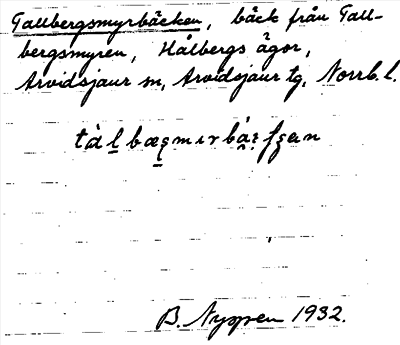 Tallbergsmyrbäcken, bäck från Tall-
bergsmyren, Hålbergs ägor,
Arvidsjaur sn, Arvidsjaur tg, Norrb. l.
B. Nygren 1932.